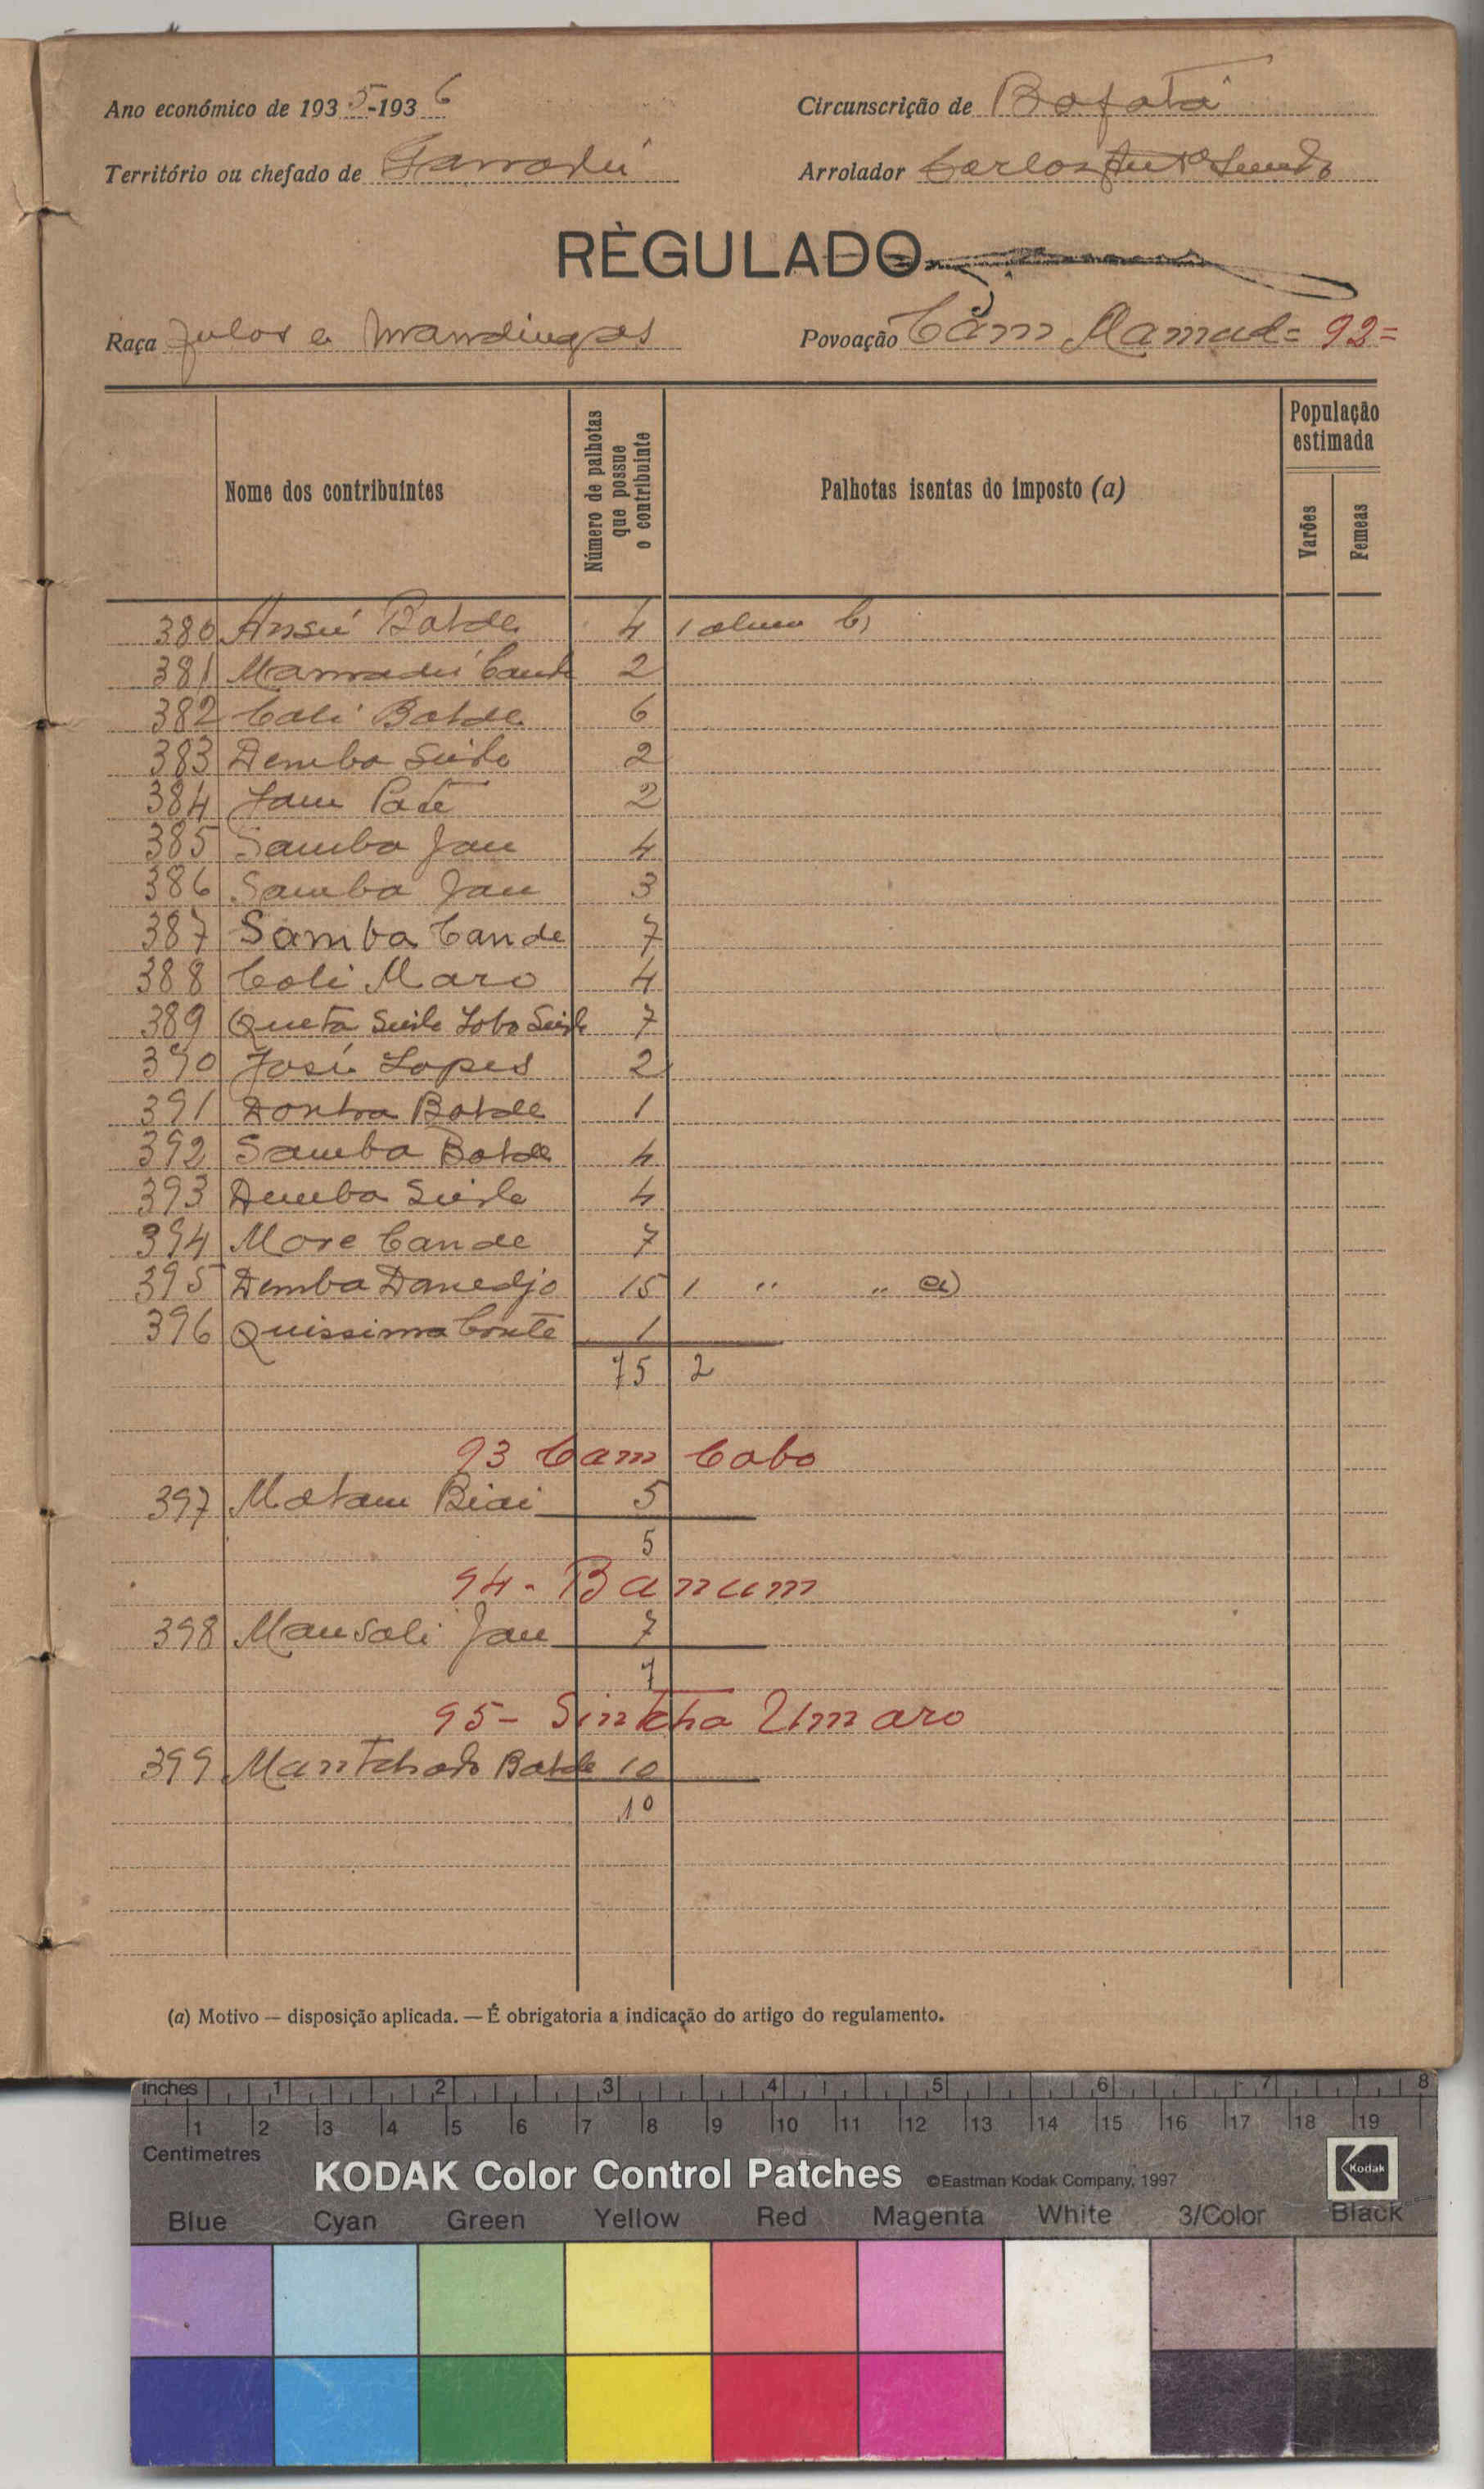 Ano económico de 1935-1936 Circunscrição de Bafatá
Território ou chefado de Arrolador Carlos
REGULADO
Raça Fulos e Mandingas Povoação Cām Mamud= 92=
Nome dos contribuintes
Número de palhotas que possue o contribuinte
Palhotas isentas do imposto (a)
População estimada
Varões
Femeas
380 Ansú Balde 4 1 b)
381 Mamadú Cande 2
382 Cali Balde 6
383 Demba Seide 2
384 Jam Paté 2
385 Samba Jau 4
386 Samba Jau 3
387 Samba Cande 7
388 Coli Maro 4
389 Queta Seide Seide 7
390 José Lopes 2
391 Balde 1
392 Samba Balde 4
393 Demba Seide 4
394 More Cande 7
395 Demba Danedjo 15 1 " " a)
396 Quissima Conté 1
75 2
93 Cam Cabo
397 Matam Biai 5
5
94 - Banum
398 Mansali Jau 7
7
95 - Sintcha Umaro
399 Balde 10
10
(a) Motivo — disposição aplicada. — É obrigatoria a indicação do artigo do regulamento.
Inches 1 2 3 4 5 6 7 8
1 2 3 4 5 6 7 8 9 10 11 12 13 14 15 16 17 18 19
Centimetres
KODAK Color Control Patches ©Eastman Kodak Company, 1997 Kodak
Blue Cyan Green Yellow Red Magenta White 3/Color Black